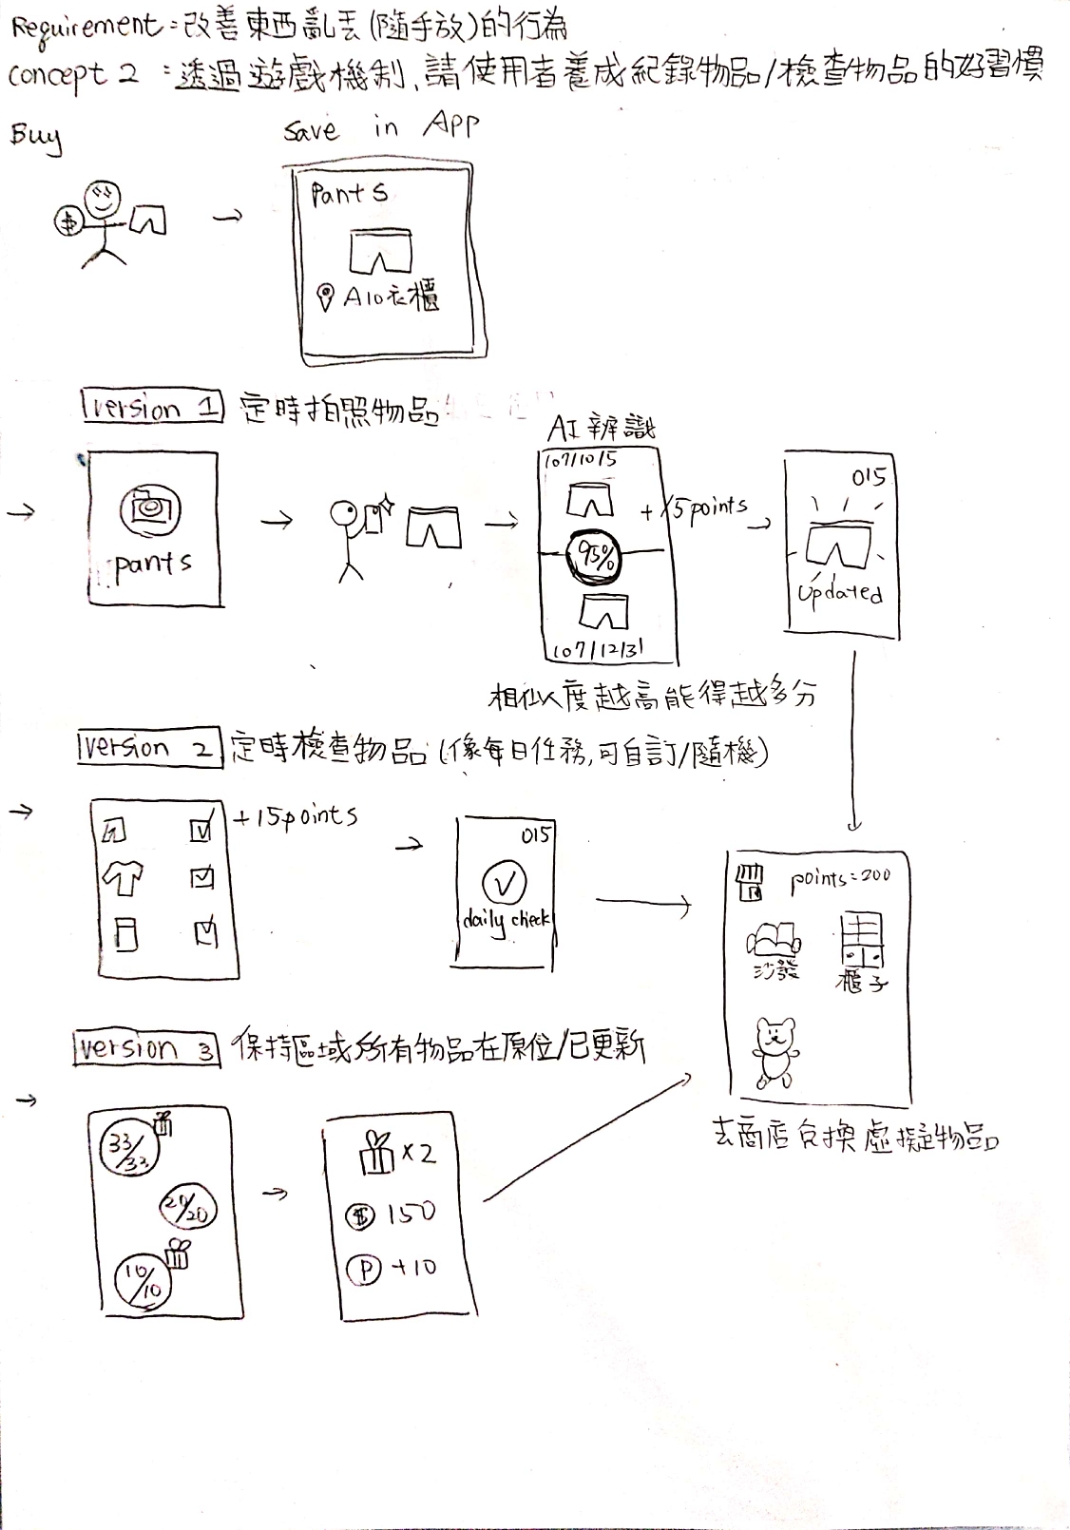 Requirement=改善東西亂丟(隨手放)的行為
concept 2 :透過遊戲機制,請使用者養成紀錄物品/檢查物品的好習慣
Buy
Save in App
$
Pants
A10衣櫃
version 1 定時拍照物品
AI 辨識
107/10/5
pants
+15points
95%
107/12/31
015
Updated
相似度越高能得越多分
version 2 定時檢查物品(像每日任務,可自訂/隨機)
+15points
015
daily check
points=200
沙發
櫃子
去商店兌換虛擬物品
version 3 保持區域所有物品在原位/已更新
33/33
/20
10/10
x2
$ 150
P +10